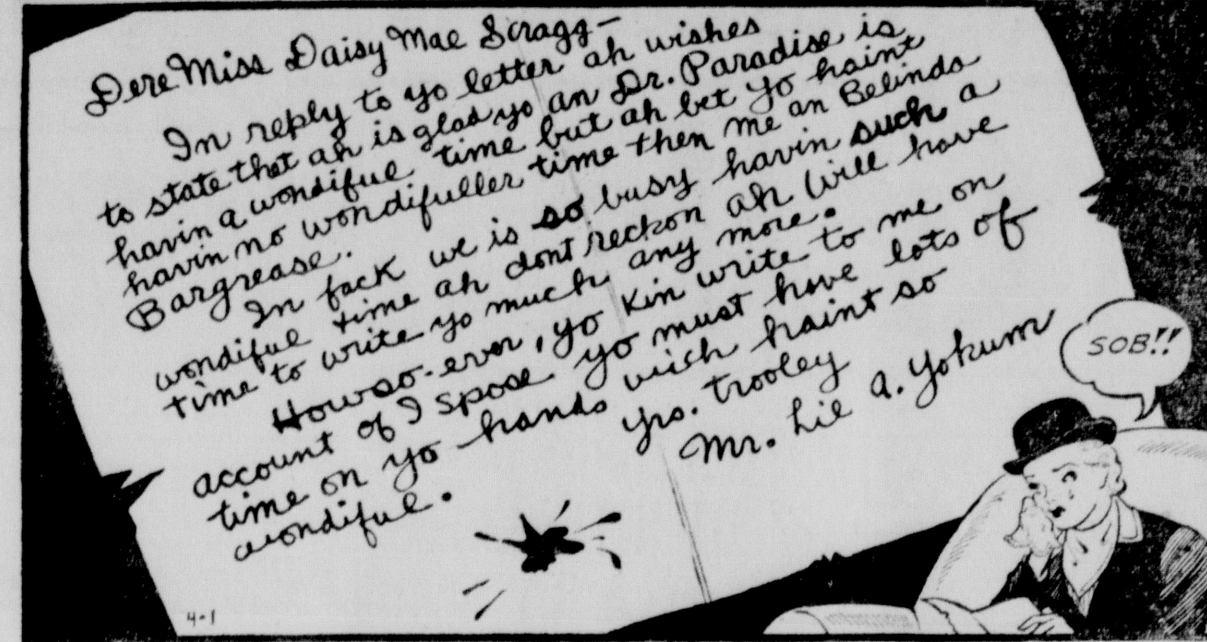 Dere Miss Daisy Mae Scragg—
In reply to yo letter ah wishes
to state that ah is glad yo an Dr. Paradise is
havin a wondiful time but ah bet yo haint
havin no wondifuller time then me an Belinda
Bargrease.
In fack we is so busy havin such a
wondiful time ah dont reckon ah will have
time to write yo much any more.
Howso-ever, yo kin write to me on
account of I spose yo must have lots of
time on yo hands wich haint so
wondiful.
yrs. trooley
Mr. Lil A. Yokum
SOB!!
4-1